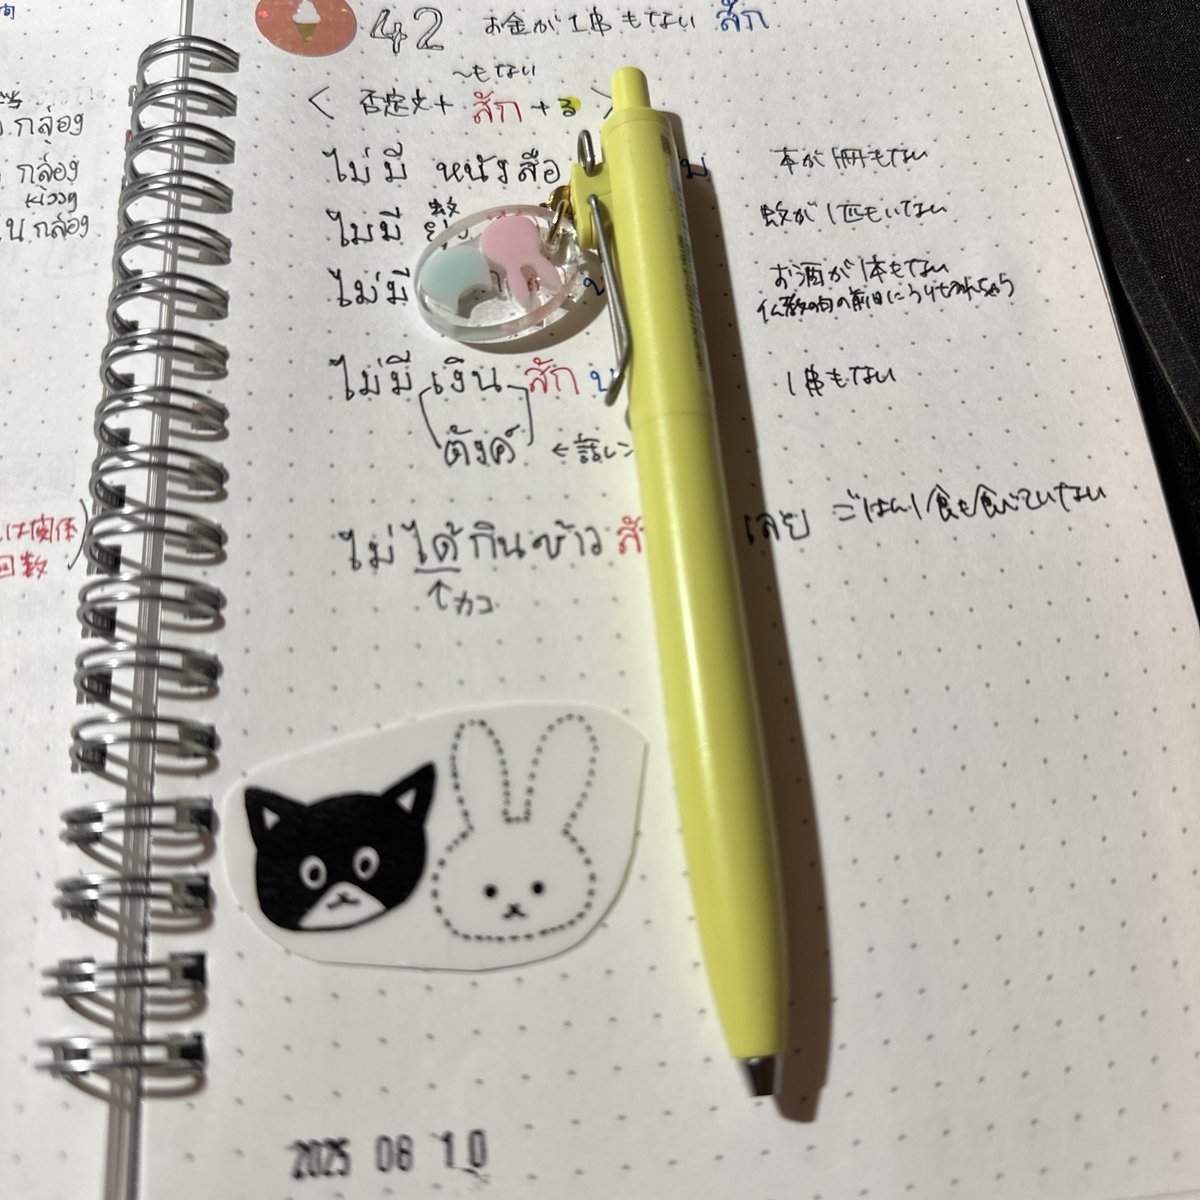 กล่อง
กล่อง
กล่อง
は関係
回数
42 お金が1串もない สัก
〜もない
〈 否定文+ สัก + る 〉
ไม่มี หนังสือ 本が1冊もない
蚊
ไม่มี 蚊が1匹もいない
ไม่มี お酒が1本もない
仏教の
ไม่มี เงิน สัก บ 1串もない
ตังค์ ←話し
ไม่ได้กินข้าว สั เลย ごはん1食も食べていない
↑カコ
2025 08 10